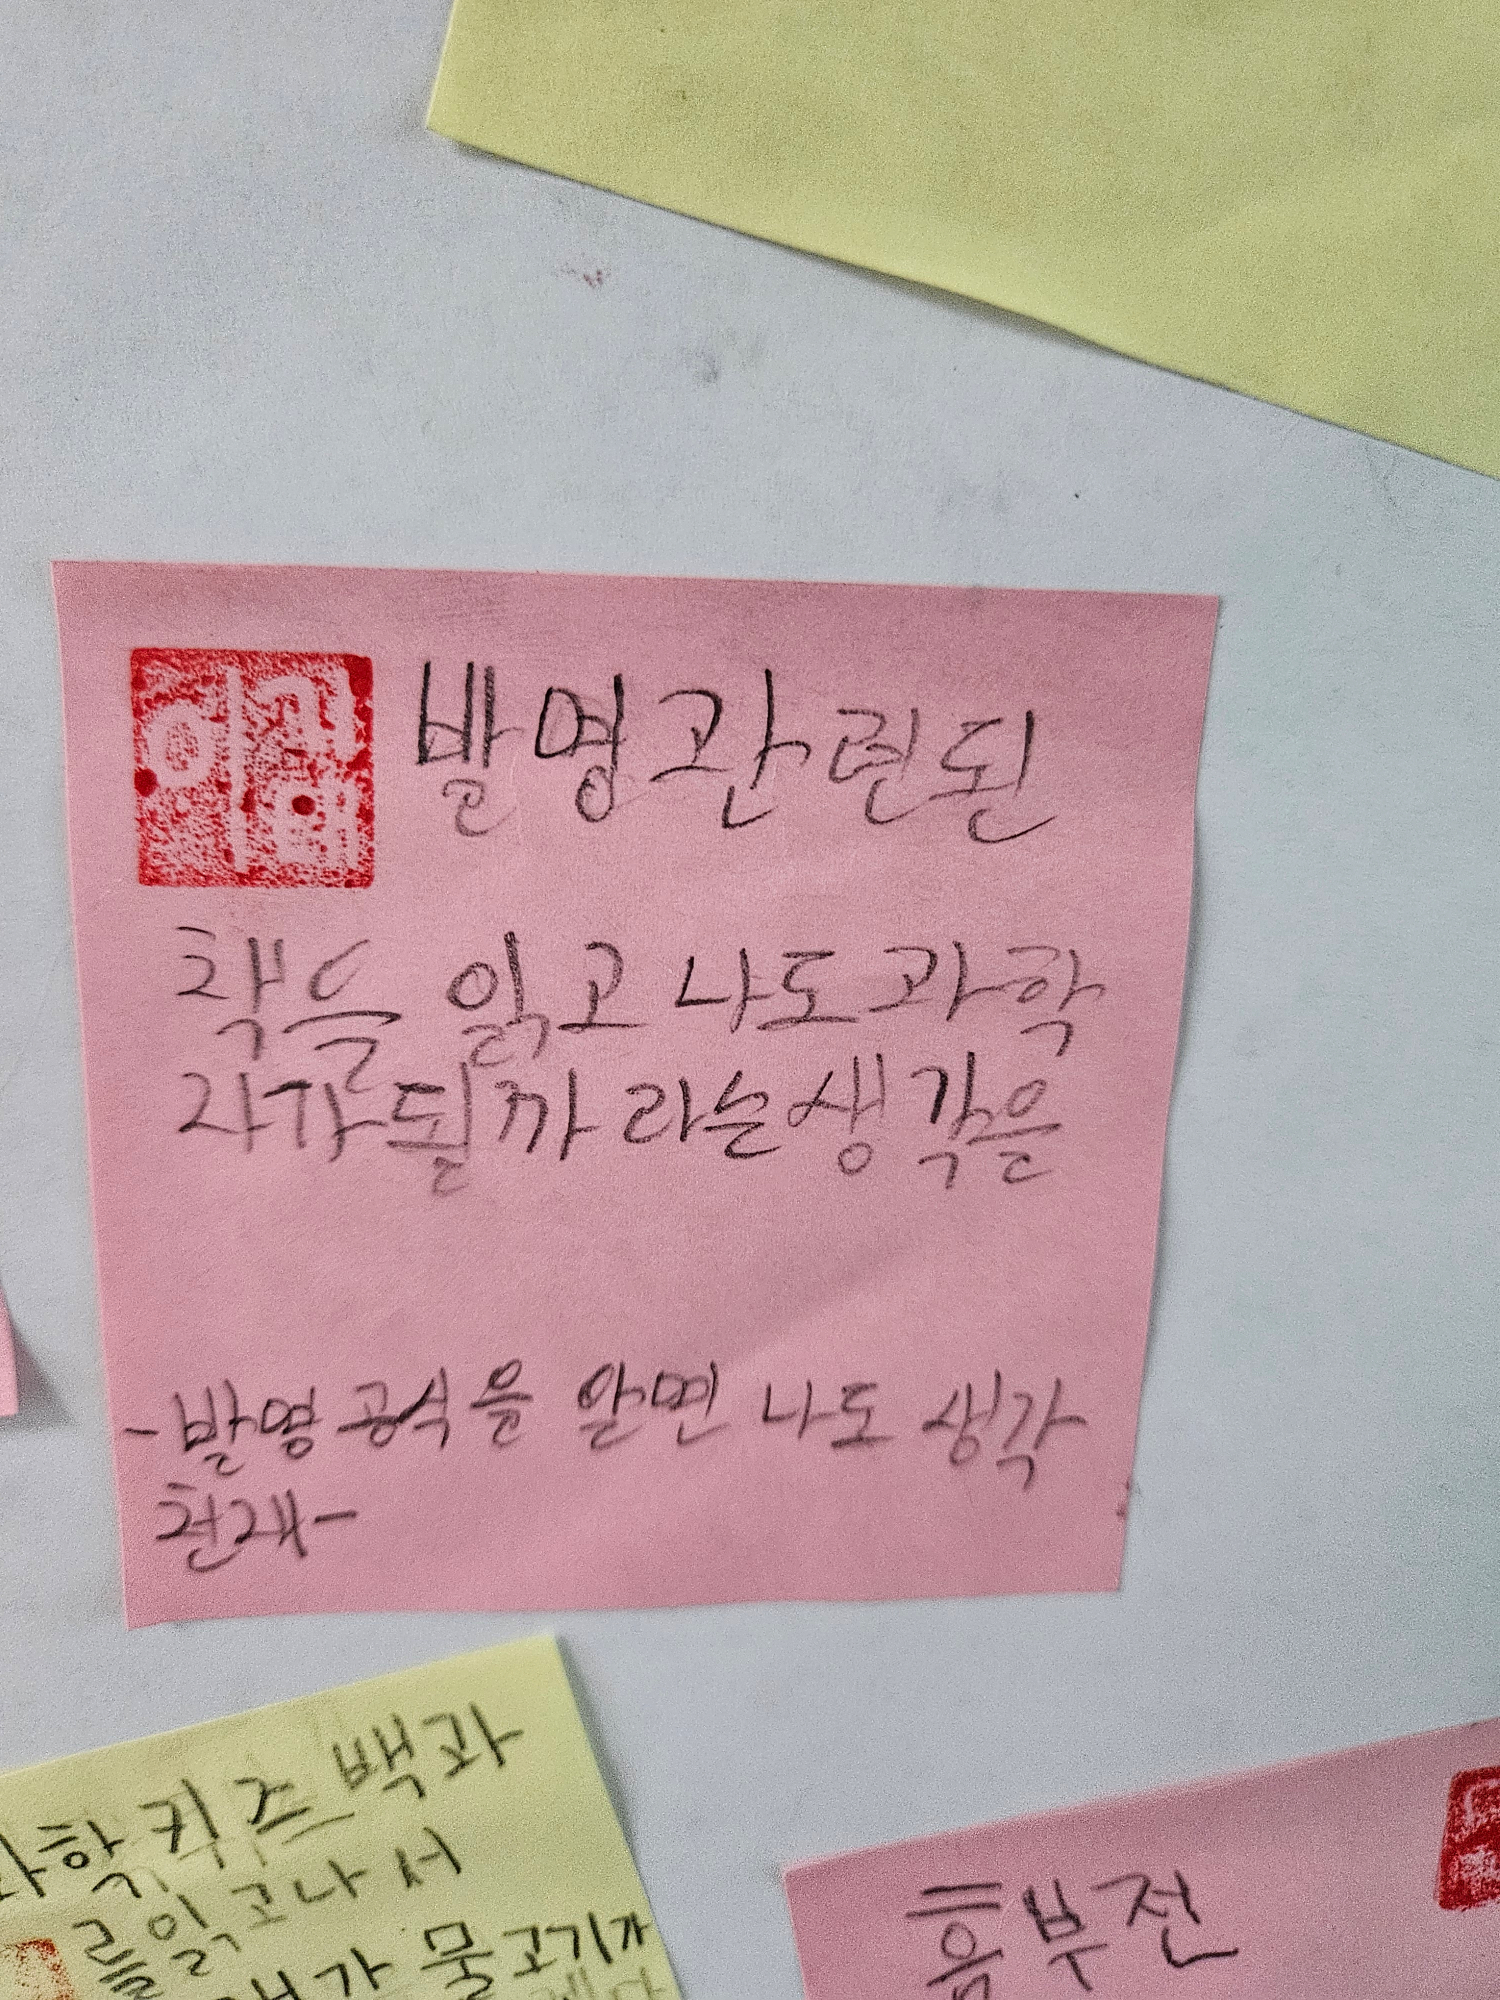 발명관련된
책을 읽고 나도 과학
자가될까 라는생각을
-발명공식을 알면 나도 생각
천재-
과학키즈백과
를읽고나서
가 물고기가
흥부전